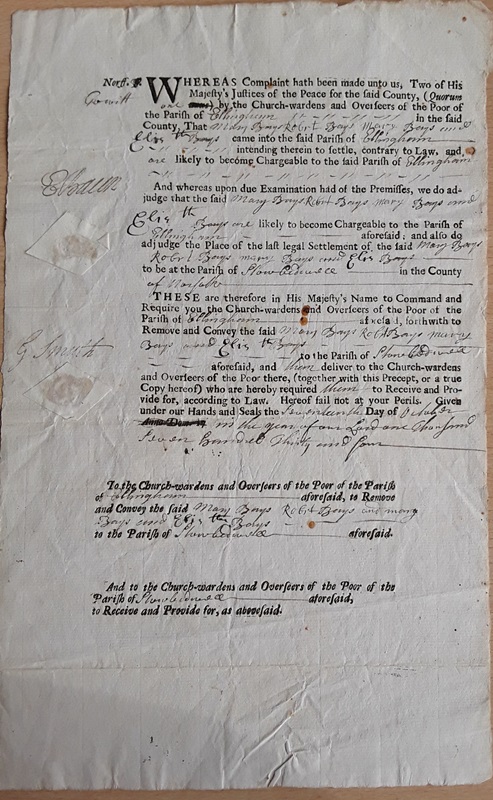 Norff.
WHEREAS Complaint hath been made unto us, Two of His
Majesty's Justices of the Peace for the said County, (Quorum
one) by the Church-wardens and Overseers of the Poor of
the Parish of Ellingham in the said
County, That Mary Bays Robert Bays Mary Bays and
Eliz th Bays come into the said Parish of Ellingham
intending therein to settle, contrary to Law, and
are likely to become Chargeable to the said Parish of Ellingham
And whereas upon due Examination had of the Premisses, we do ad-
judge that the said Mary Bays Robt Bays mary Bays and
Eliz th Bays are likely to become Chargeable to the Parish of
Ellingham aforesaid; and also do
adjudge the Place of the last legal Settlement of the said Mary Bays
Robert Bays mary Bays and Eliz Bays
to be at the Parish of Stow Bedwell in the County
of Norfolk
THESE are therefore in His Majesty's Name to Command and
Require you the Church-wardens and Overseers of the Poor of the
Parish of Ellingham aforesaid, forthwith to
Remove and Convey the said Mary Bays Robt Bays mary
Bays and Eliz th Bays to the Parish of Stow Bedwell
aforesaid, and them deliver to the Church-wardens
and Overseers of the Poor there, (together with this Precept, or a true
Copy hereof) who are hereby required them to Receive and Pro-
vide for, according to Law. Hereof fail not at your Perils. Given
under our Hands and Seals the seventeenth Day of October
Anno Domini in the year of our Lord one Thousand
Seven hundred Thirty and four
G Smyth
To the Church-wardens and Overseers of the Poor of the Parish
of Ellingham aforesaid, to Remove
and Convey the said Mary Bays Robt Bays and mary
Bays and Eliz th Bays
to the Parish of Stow Bedwell aforesaid.
And to the Church-wardens and Overseers of the Poor of the
Parish of Stow Bedwell aforesaid,
to Receive and Provide for, as abovesaid.